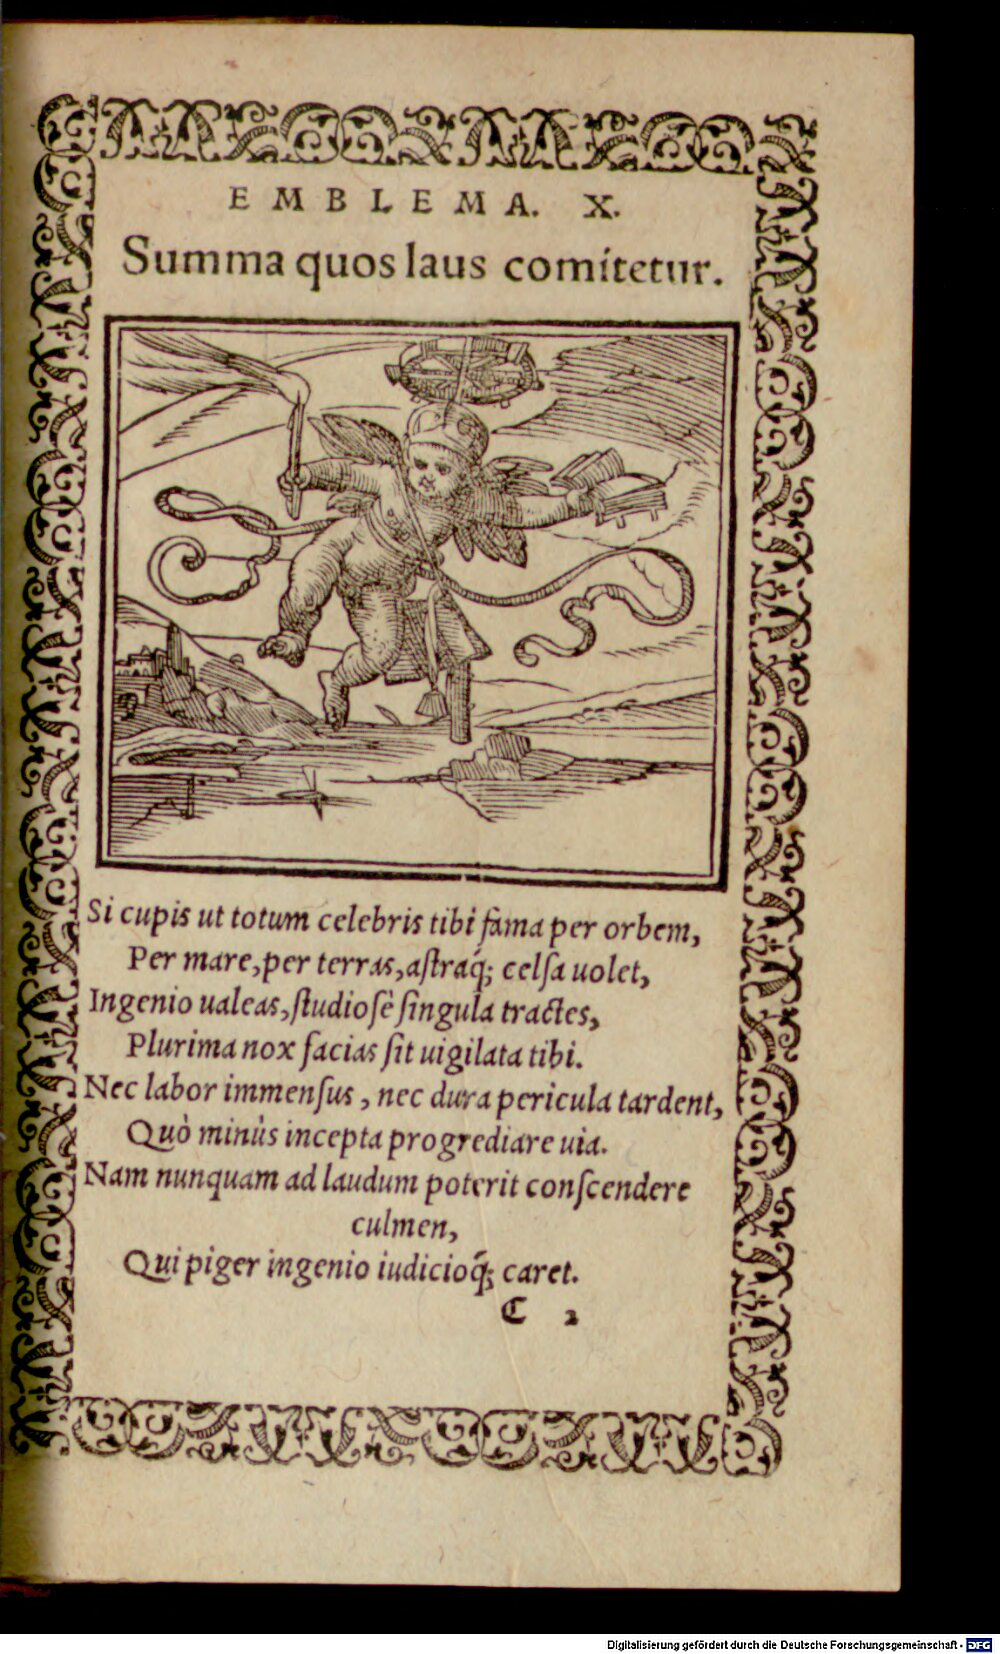 EMBLEMA. X.
Summa quos laus comitetur.
Si cupis ut totum celebris tibi fama per orbem,
Per mare, per terras, aſtraq́; celſa uolet,
Ingenio ualeas, ſtudioſè ſingula tractes,
Plurima nox facias ſit uigilata tibi.
Nec labor immenſus, nec dura pericula tardent,
Quò minùs incepta progrediare uia.
Nam nunquam ad laudum poterit conſcendere
culmen,
Qui piger ingenio iudicioq́; caret.
C 2
Digitalisierung gefördert durch die Deutsche Forschungsgemeinschaft - DFG